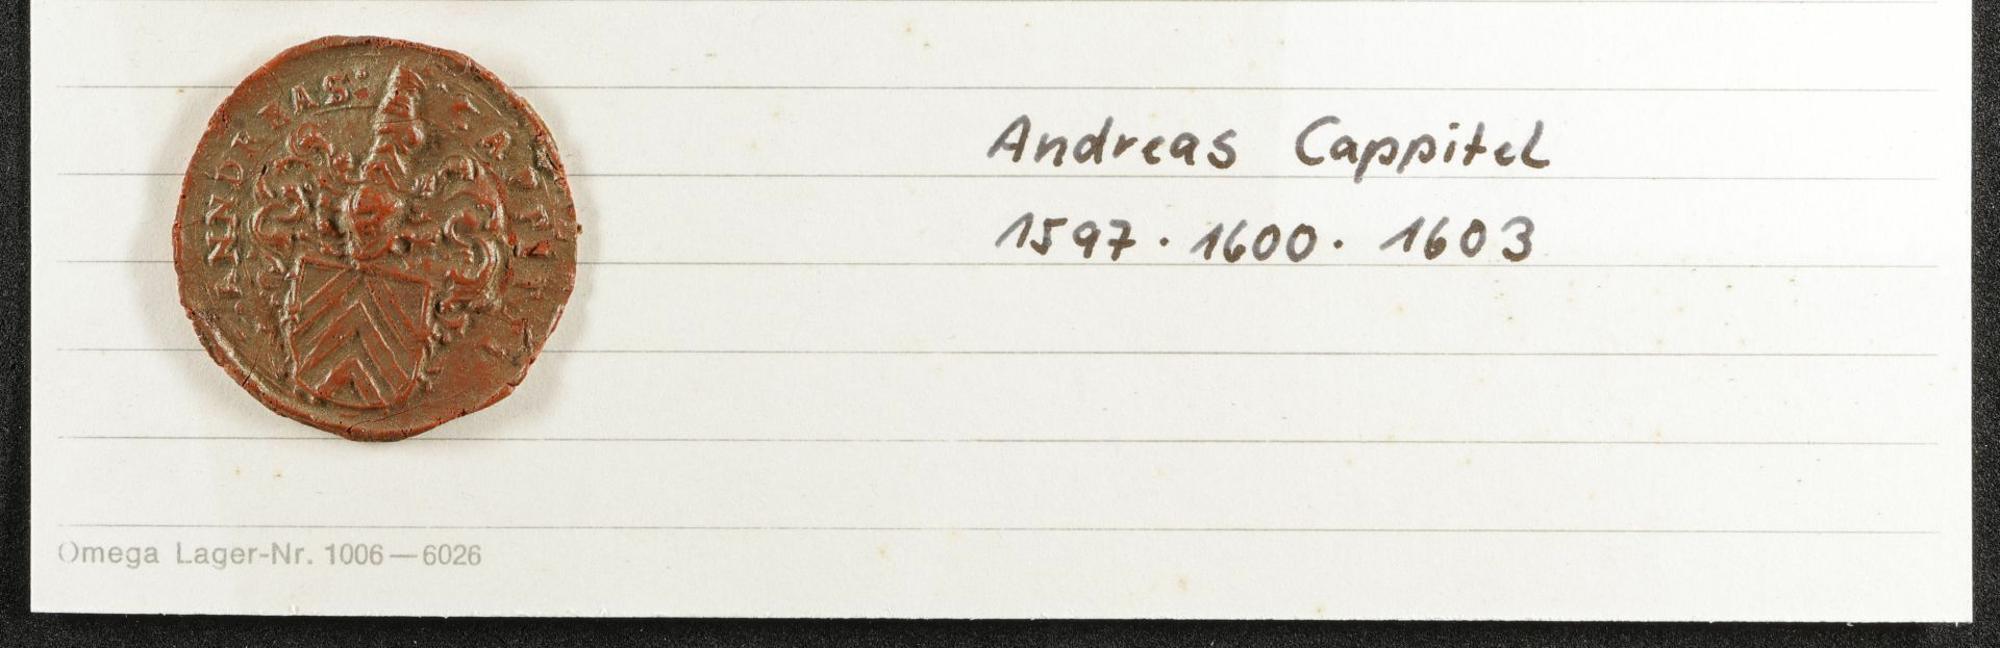 ANDREAS:
Andreas Cappitel
1597 · 1600 · 1603
Omega Lager-Nr. 1006—6026